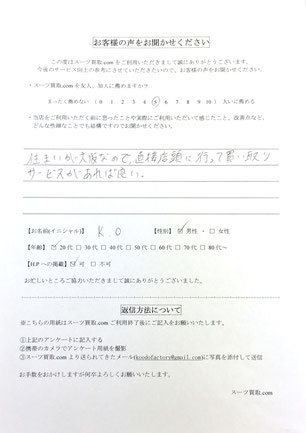 お客様の声をお聞かせください
この度はスーツ買取.comをご利用いただきまして誠にありがとうございます。
今後のサービス向上の参考にさせていただきたいので、お客様の声をお聞かせください。
・スーツ買取.comを友人、知人に薦めますか？
まったく薦めない（0 1 2 3 4 5 6 7 8 9 10）大いに薦める
・当店をご利用いただく前に思ったことや実際にご利用いただいて感じたこと、改善点など、
どんな些細なことでも結構ですのでお聞かせください。
住まいが大阪なので、直接店頭に行って買い取り
サービスがあれば良い。
【お名前(イニシャル)】 K.O 【性別】☑男性・□女性
【年齢】☑20代 □30代 □40代 □50代 □60代 □70代 □80代～
【H.Pへの掲載】☑可 □不可
お忙しいところご協力いただきまして誠にありがとうございました。
返信方法について
※こちらの用紙はスーツ買取.comご利用終了後にご記入をお願いいたします。
①上記のアンケートに記入する
②携帯のカメラでアンケート用紙を撮影
③スーツ買取.comより送られてきたメール(koodofactory@gmail.com)に写真を添付して送信
お手数をおかけしますが何卒よろしくお願いいたします。
スーツ買取.com